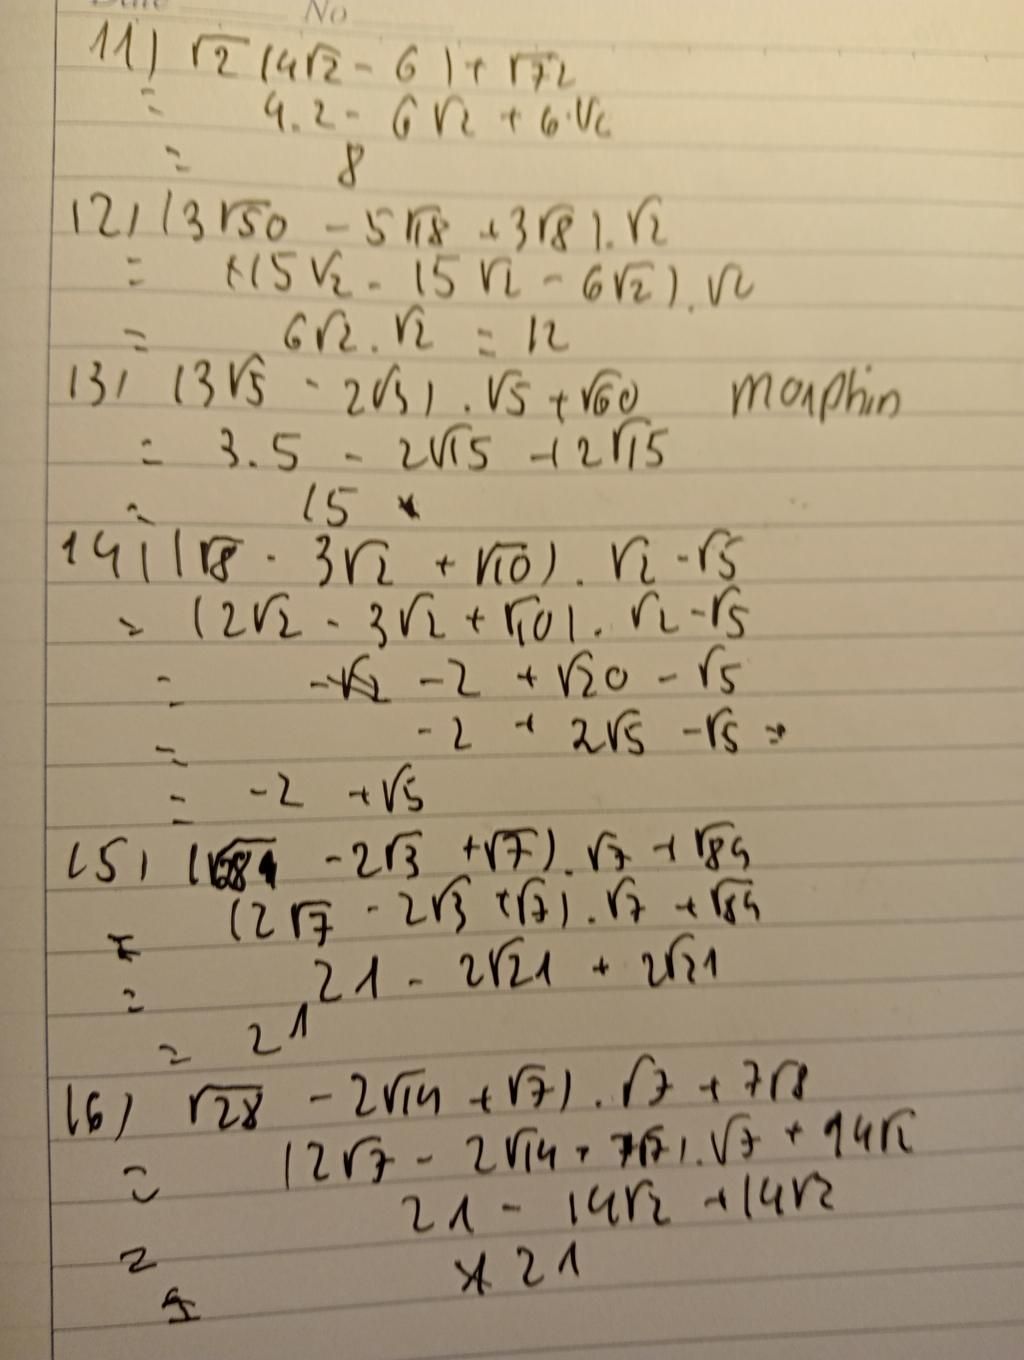 No
11) √2 (4√2 - 6) + √72
= 4.2 - 6√2 + 6.√2
= 8
12) (3√50 - 5√18 + 3√8).√2
= (15√2 - 15√2 - 6√2).√2
= 6√2.√2 = 12
13) (3√5 - 2√3).√5 + √60 morphin
= 3.5 - 2√15 + 2√15
= 15
14) (√8 - 3√2 + √10).√2 - √5
= (2√2 - 3√2 + √10).√2 - √5
= -2 + √20 - √5
= -2 + 2√5 - √5 =
= -2 + √5
15) (√28 - 2√3 + √7).√7 + √84
= (2√7 - 2√3 + √7).√7 + √84
= 21 - 2√21 + 2√21
= 21
16) √28 - 2√14 + √7).√7 + 7√8
= (2√7 - 2√14 + √7).√7 + 14√2
21 - 14√2 + 14√2
= 21